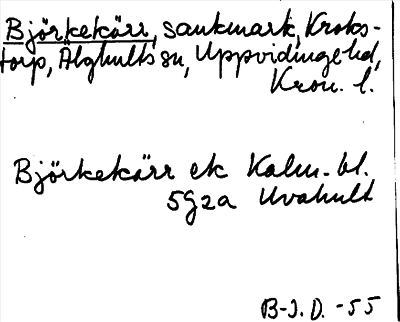 Björkekärr, sankmark, Kroks-
torp, Älghults sn, Uppvidinge hd,
Kron. l.
Björkekärr ek Kalm. bl.
5g2a Uvahult
B-J. D. -55